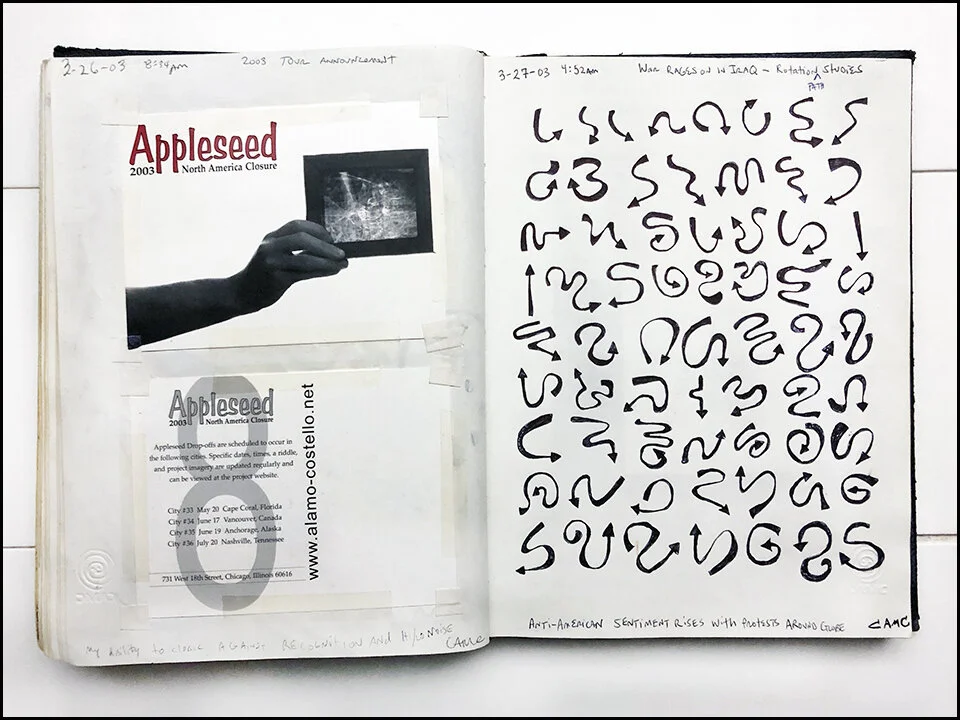 3-26-03 8:34pm 2003 TOUR ANNOUNCEMENT
Appleseed
2003 North America Closure
Appleseed
2003 North America Closure
Appleseed Drop-offs are scheduled to occur in
the following cities. Specific dates, times, a riddle,
and project imagery are updated regularly and
can be viewed at the project website.
City #33 May 20 Cape Coral, Florida
City #34 June 17 Vancouver, Canada
City #35 June 19 Anchorage, Alaska
City #36 July 20 Nashville, Tennessee
731 West 18th Street, Chicago, Illinois 60616
www.alamo-costello.net
8
My ability to AGAINST RECOGNITION AND
CAMC
3-27-03 4:52am WAR RAGES ON IN IRAQ – Rotation STUDIES
PATH
ANTI-AMERICAN SENTIMENT RISES WITH PROTESTS AROUND GLOBE CAMC